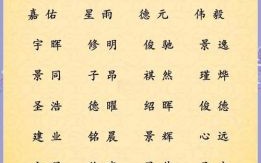 嘉佑 星雨 德元 伟毅
宇晖 修明 俊驰 景逸
景同 子昂 祺然 瑾烨
圣浩 德曜 绍晖 俊德
建业 铭晨 景辉 心远